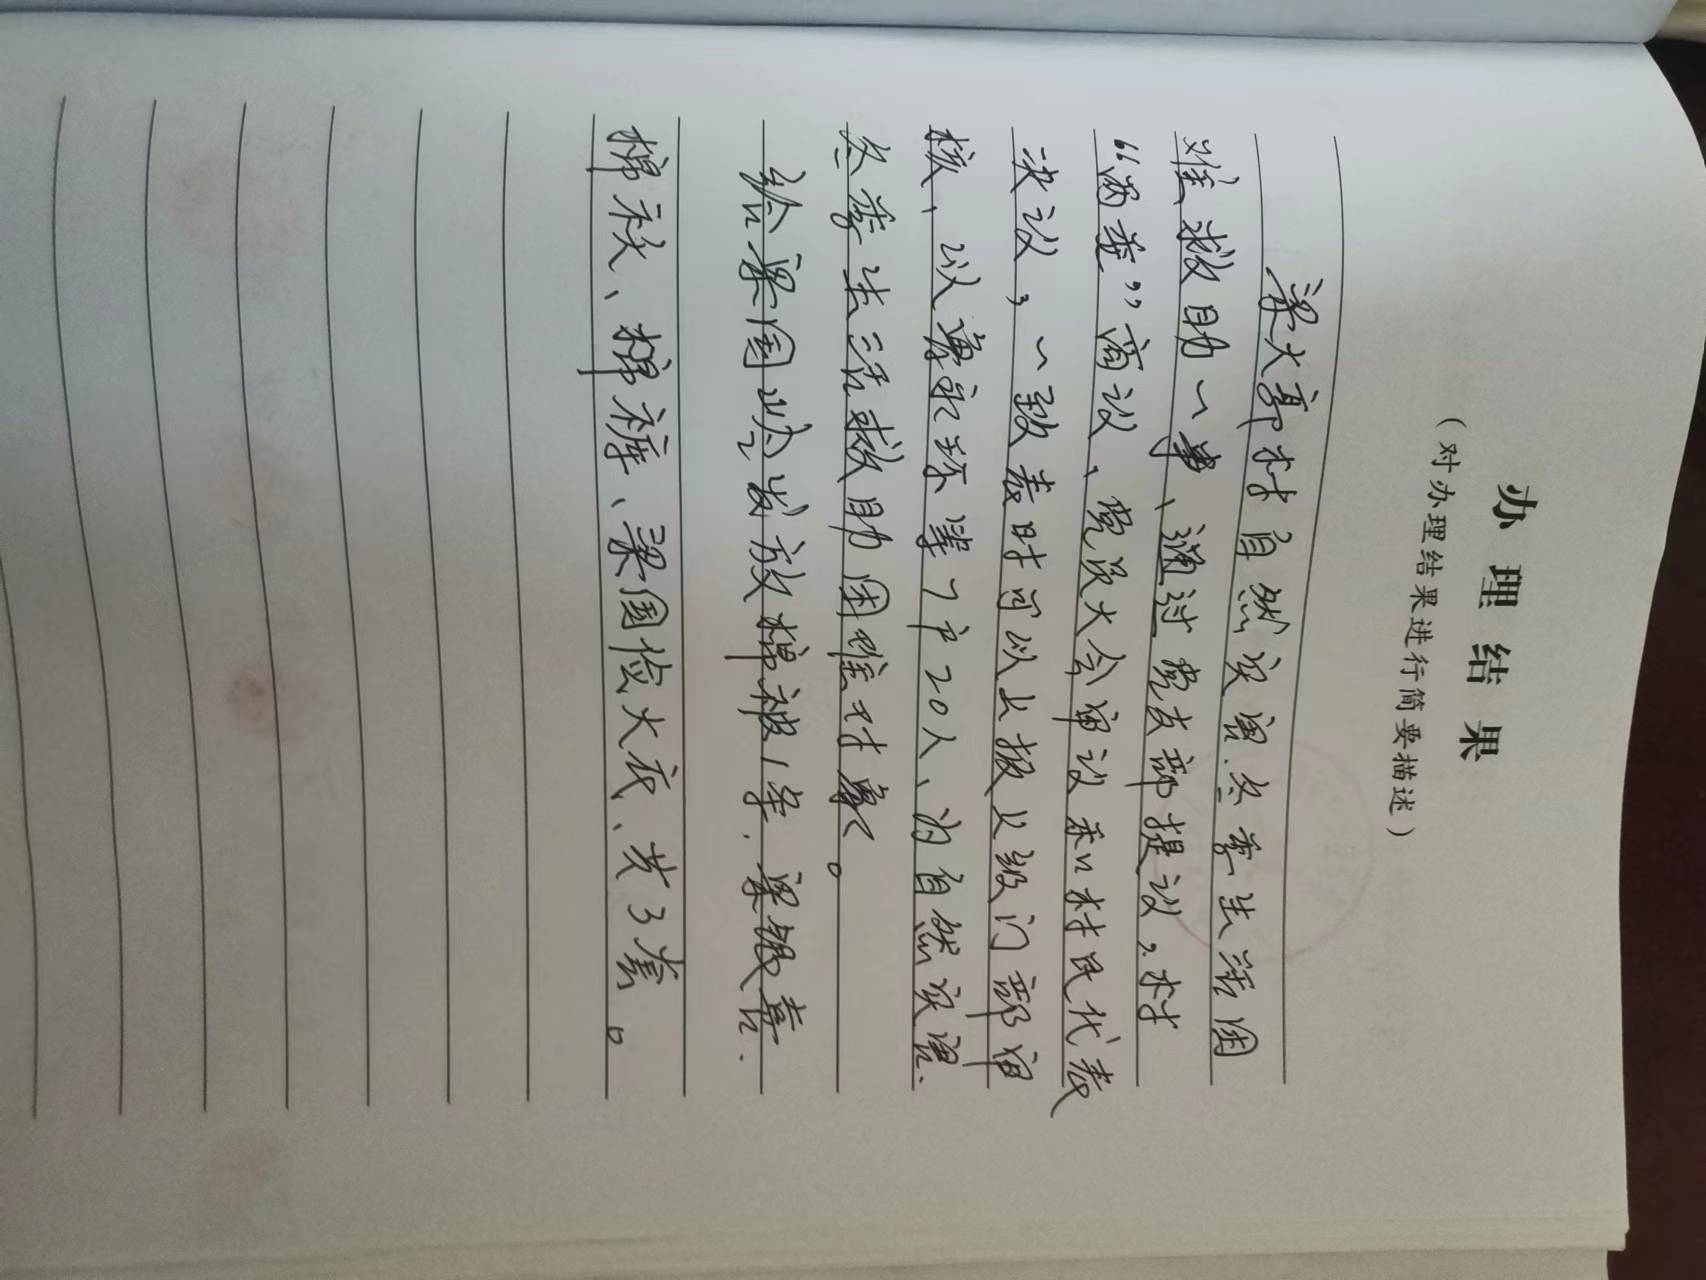 办理结果
（对办理结果进行简要描述）
梁大郭村自然灾害冬季生活困
难救助一事、通过党支部提议，村
“两委”商议、党员大会审议和村民代表
决议，一致表时可以上报上级门部审
核、以 永环等7户20人、为自然灾害、
冬季生活救助困难对象。
给梁国 发放棉被1条、梁银喜、
棉袄、棉裤、梁国俭大衣、共3套。